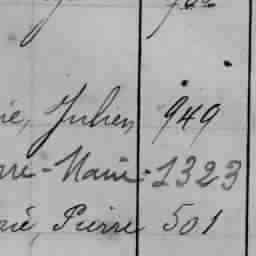 ie, Julien 949
rre-Marie 1323
rié, Pierre 501